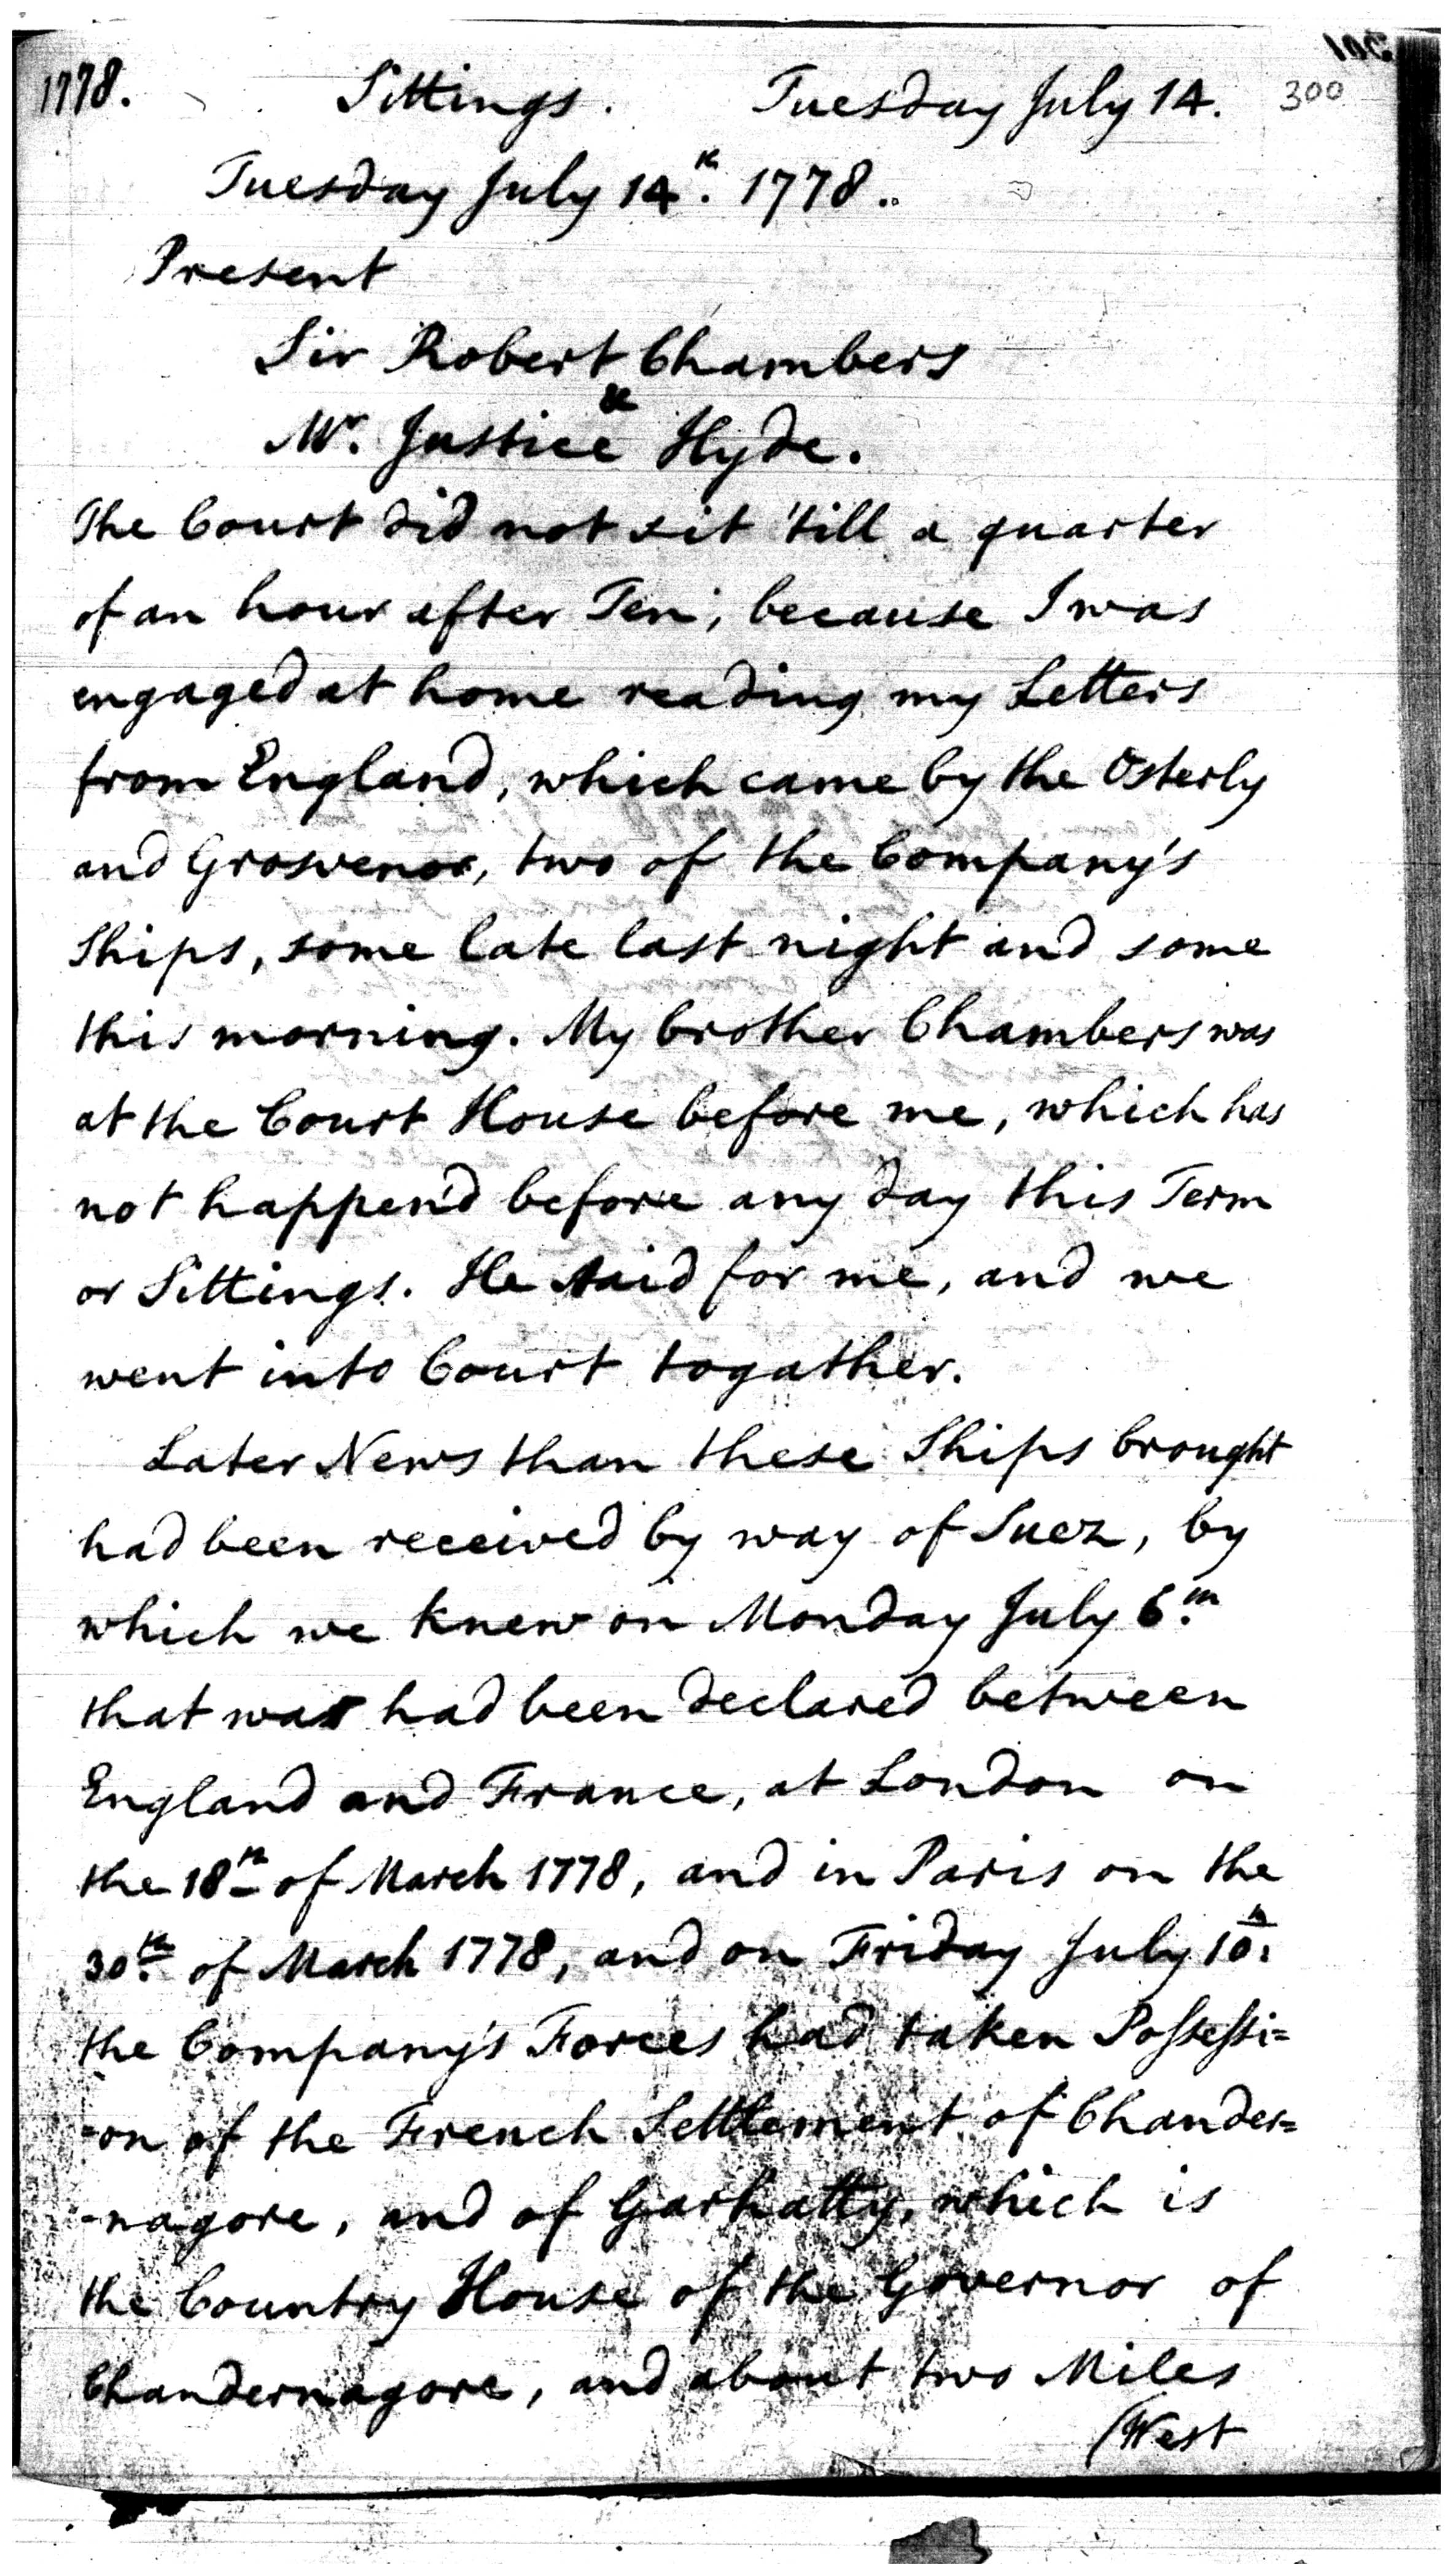 1778. Sittings. Tuesday July 14. 300
Tuesday July 14th. 1778..
Present
Sir Robert Chambers
&
Mr. Justice Hyde.
The Court did not sit 'till a quarter
of an hour after Ten, because I was
engaged at home reading my Letters
from England, which came by the Osterly
and Grosvenor, two of the Company's
Ships, some late last night and some
this morning. My brother Chambers was
at the Court House before me, which has
not happen'd before any day this Term
or Sittings. He staid for me, and we
went into Court togather.
Later News than these Ships brought
had been received by way of Suez, by
which we knew on Monday July 6th.
that war had been declared between
England and France, at London on
the 18th of March 1778, and in Paris on the
30th. of March 1778, and on Friday July 10th.
the Company's Forces had taken Possessi=
-on of the French Settlement of Chander=
-nagore, and of Garhatty, which is
the Country House of the Governor of
Chandernagore, and about two Miles
(West